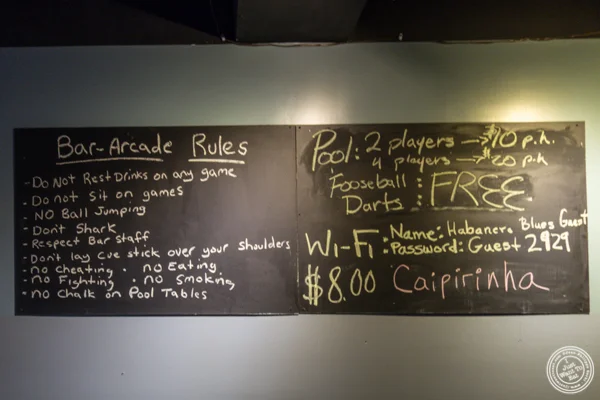 Bar-Arcade Rules
- Do Not Rest Drinks on any game
- Do not sit on games
- NO Ball Jumping
- Don't Shark
- Respect Bar Staff
- Don't lay cue stick over your shoulders
- no Cheating . no Eating
- no Fighting . no Smoking
- no Chalk on Pool Tables
Pool: 2 players → $10 p.h.
4 players → $20 p.h
Fooseball : FREE
Darts :
Wi-Fi : Name: Habanero Blues Guest
Password: Guest 2929
$8.00 Caipirinha
I Just Want To Eat